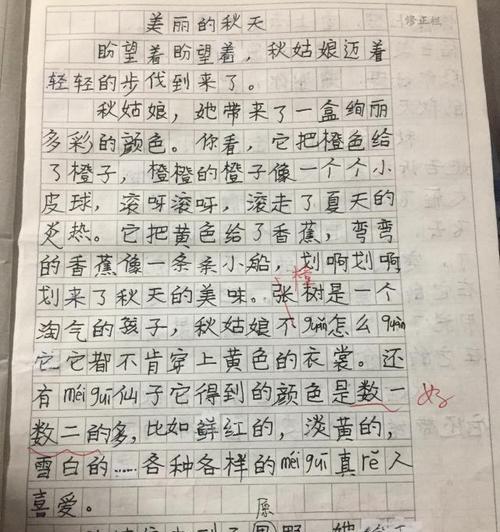 美丽的秋天
修正栏
盼望着盼望着，秋姑娘迈着
轻轻的步伐到来了。
秋姑娘，她带来了一盒绚丽
多彩的颜色。你看，它把橙色给
了橙子，橙橙的橙子像一个个小
皮球，滚呀滚呀，滚走了夏天的
炎热。它把黄色给了香蕉，弯弯
的香蕉像一条条小船，划啊划啊，
樟
划来了秋天的美味。张树是一个
淘气的孩子，秋姑娘不guǎn怎么quàn
它它都不肯穿上黄色的衣裳。还
有méi guī仙子它得到的颜色是数一
好
数二的多，比如鲜红的，淡黄的，
雪白的……各种各样的méi guī真rě人
喜爱。
原